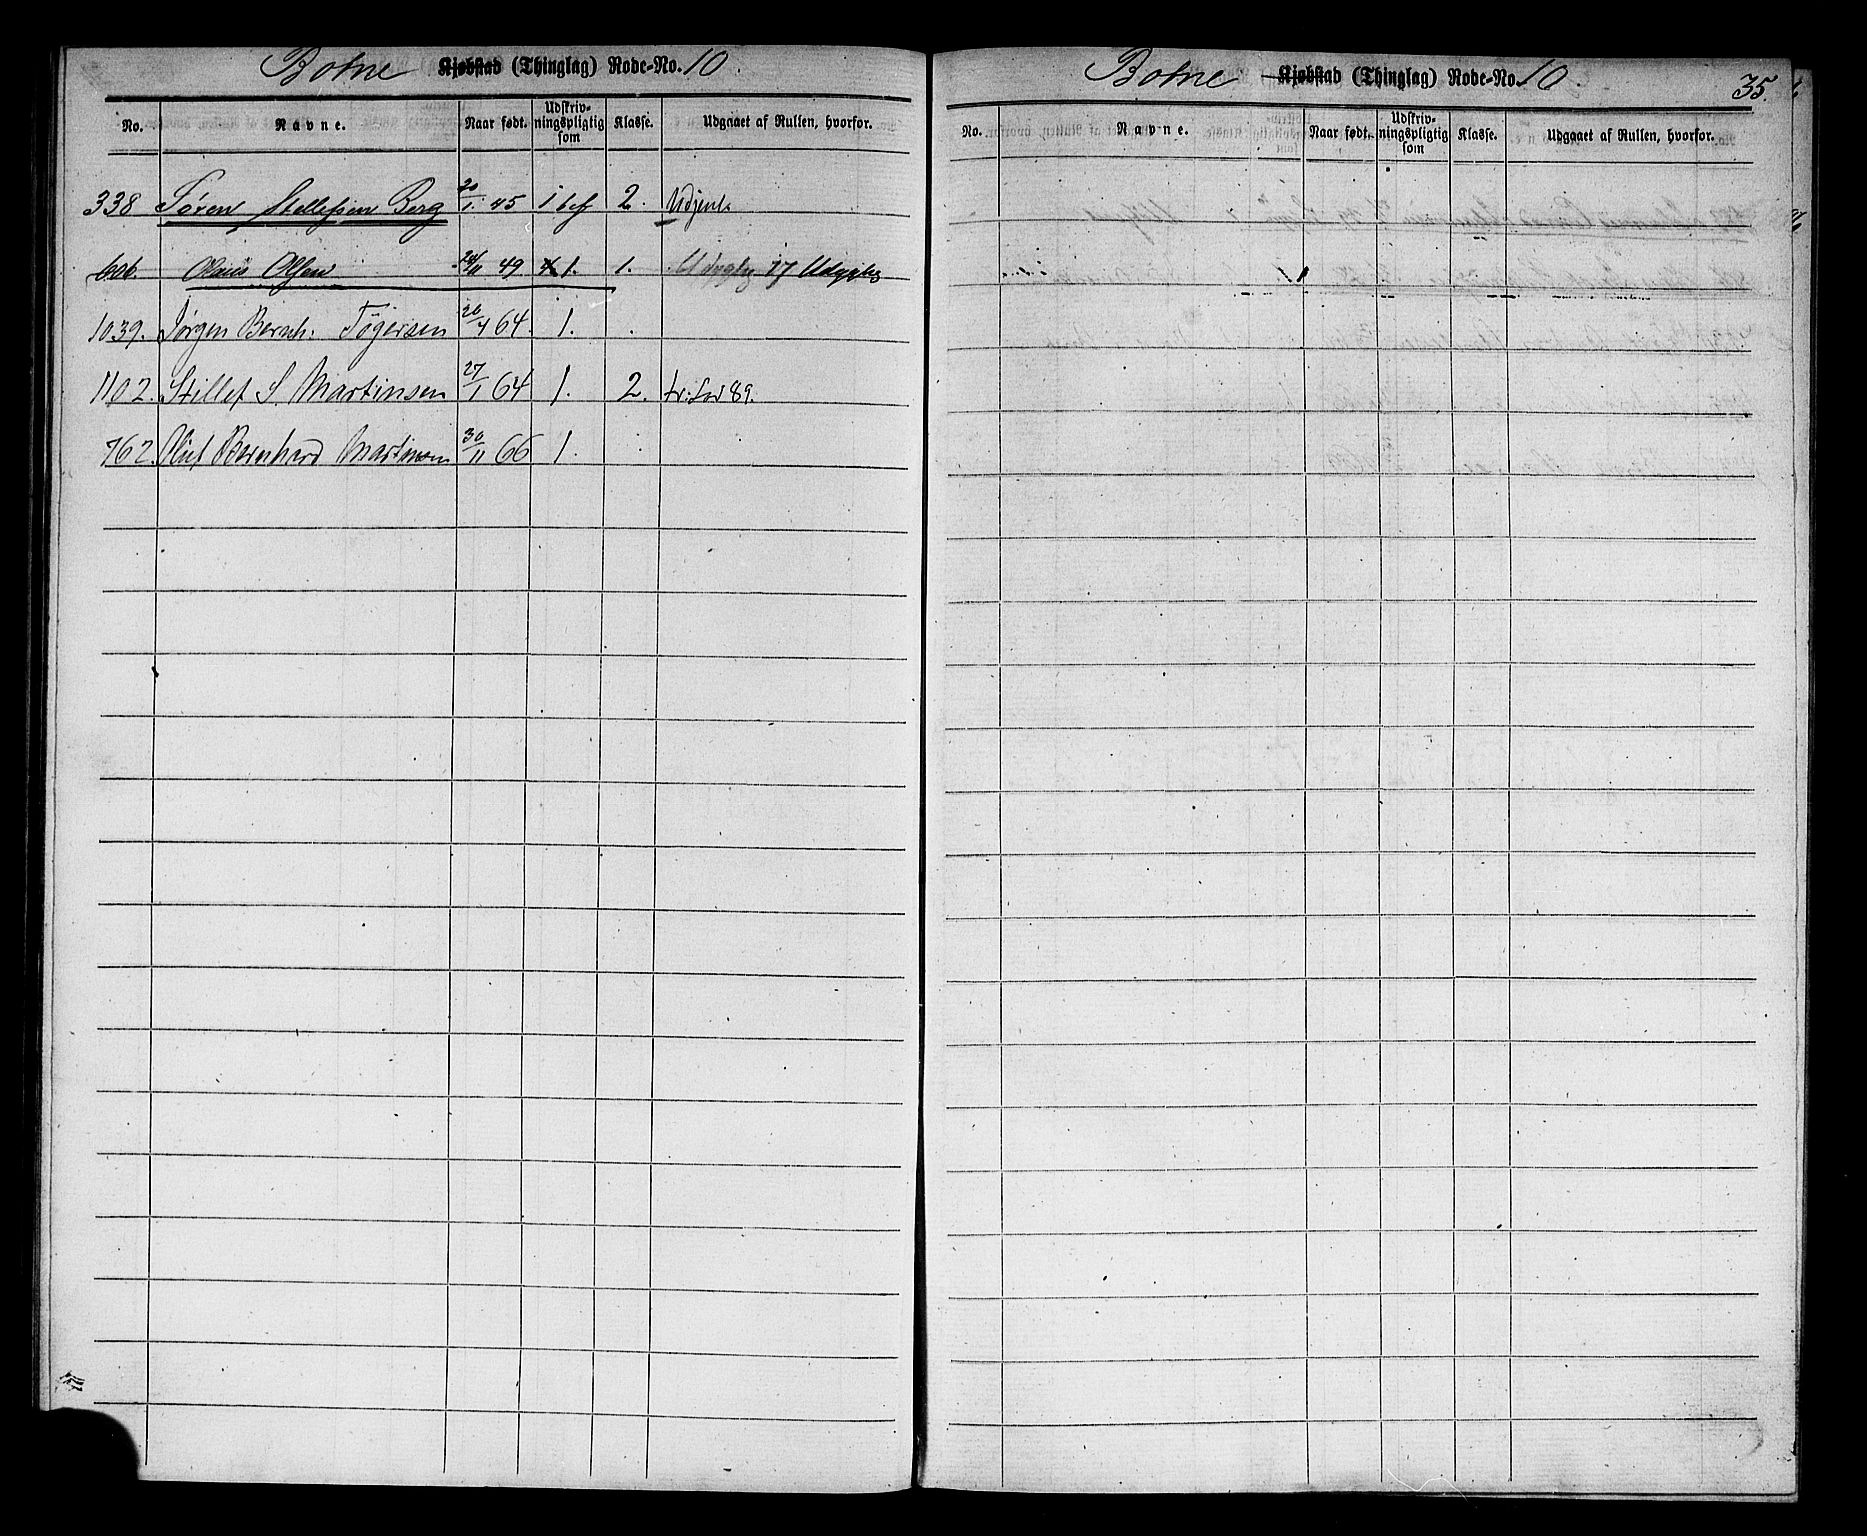 Botne Kjøbstad (Thinglag) Rode-No. 10.
No. Navne. Naar født. Udskriv-ningspligtig som Klasse. Udgaaet af Rullen, hvorfor.
338 Søren Stillefsen Berg 20/1 45 1 bef 2. Udtjent
606. Olaus Olsen 24/11 49 1. 1. Udygtig
1039. Jørgen Bernh: Tøgersen 20/4 64. 1.
1102. Stillef S. Martinsen 27/1 64 1. 2. 89.
762. Bernhard Martinsen 30/11 66 1.
Botne Kjøbstad (Thinglag) Rode-No. 10. 35.
No. Navne. Naar født. Udskriv-ningspligtig som Klasse. Udgaaet af Rullen, hvorfor.